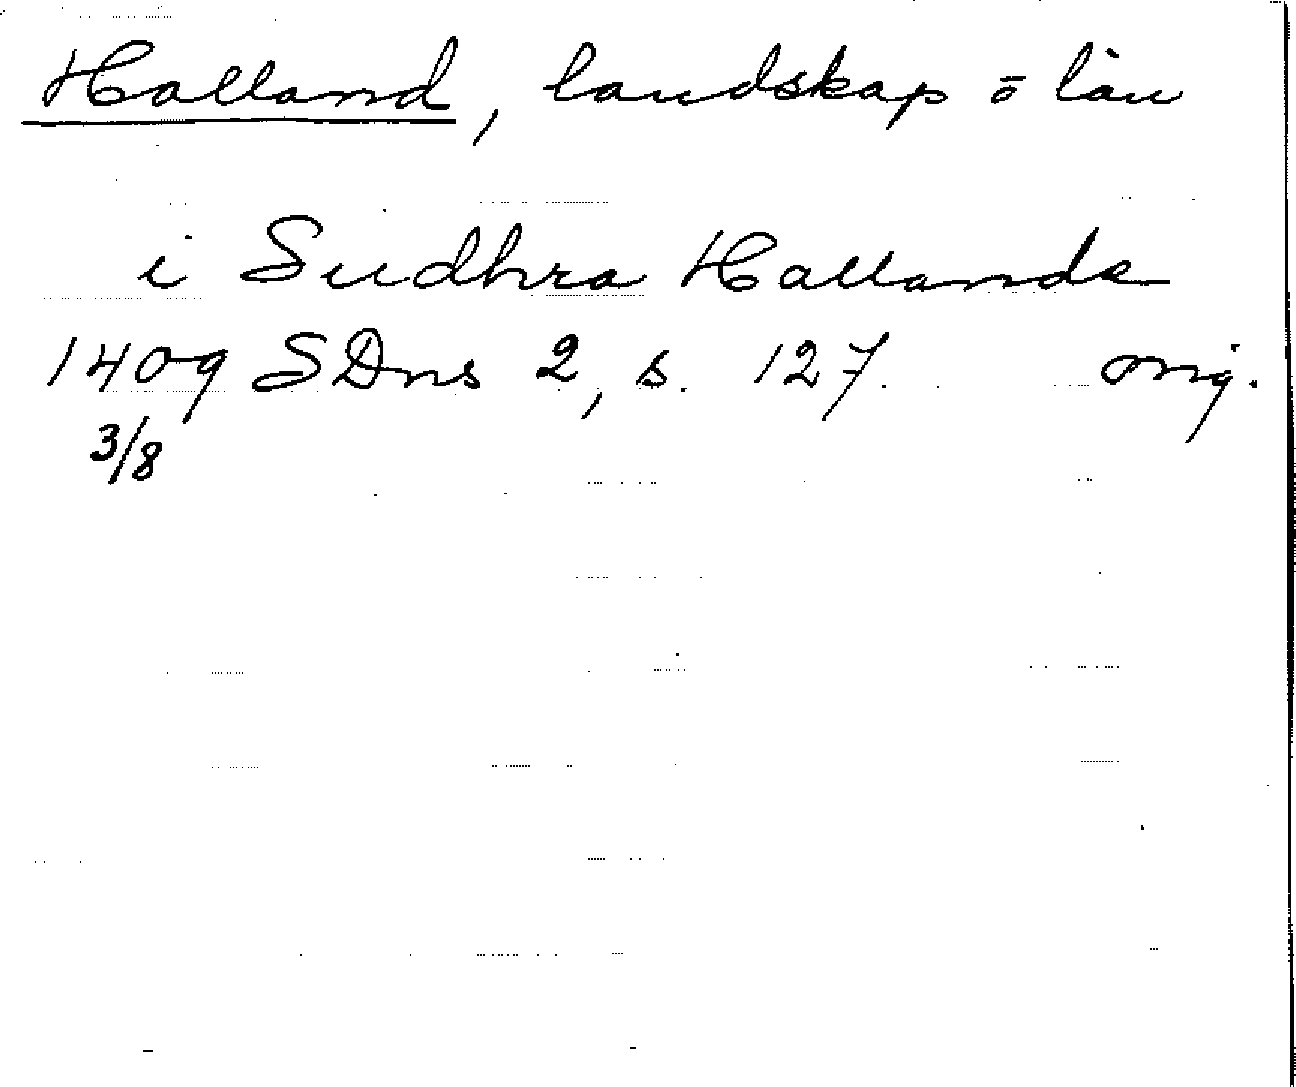 Halland, landskap ō län
i Sudhra Hallande
1409 SDns 2, s. 127. orig.
3/8